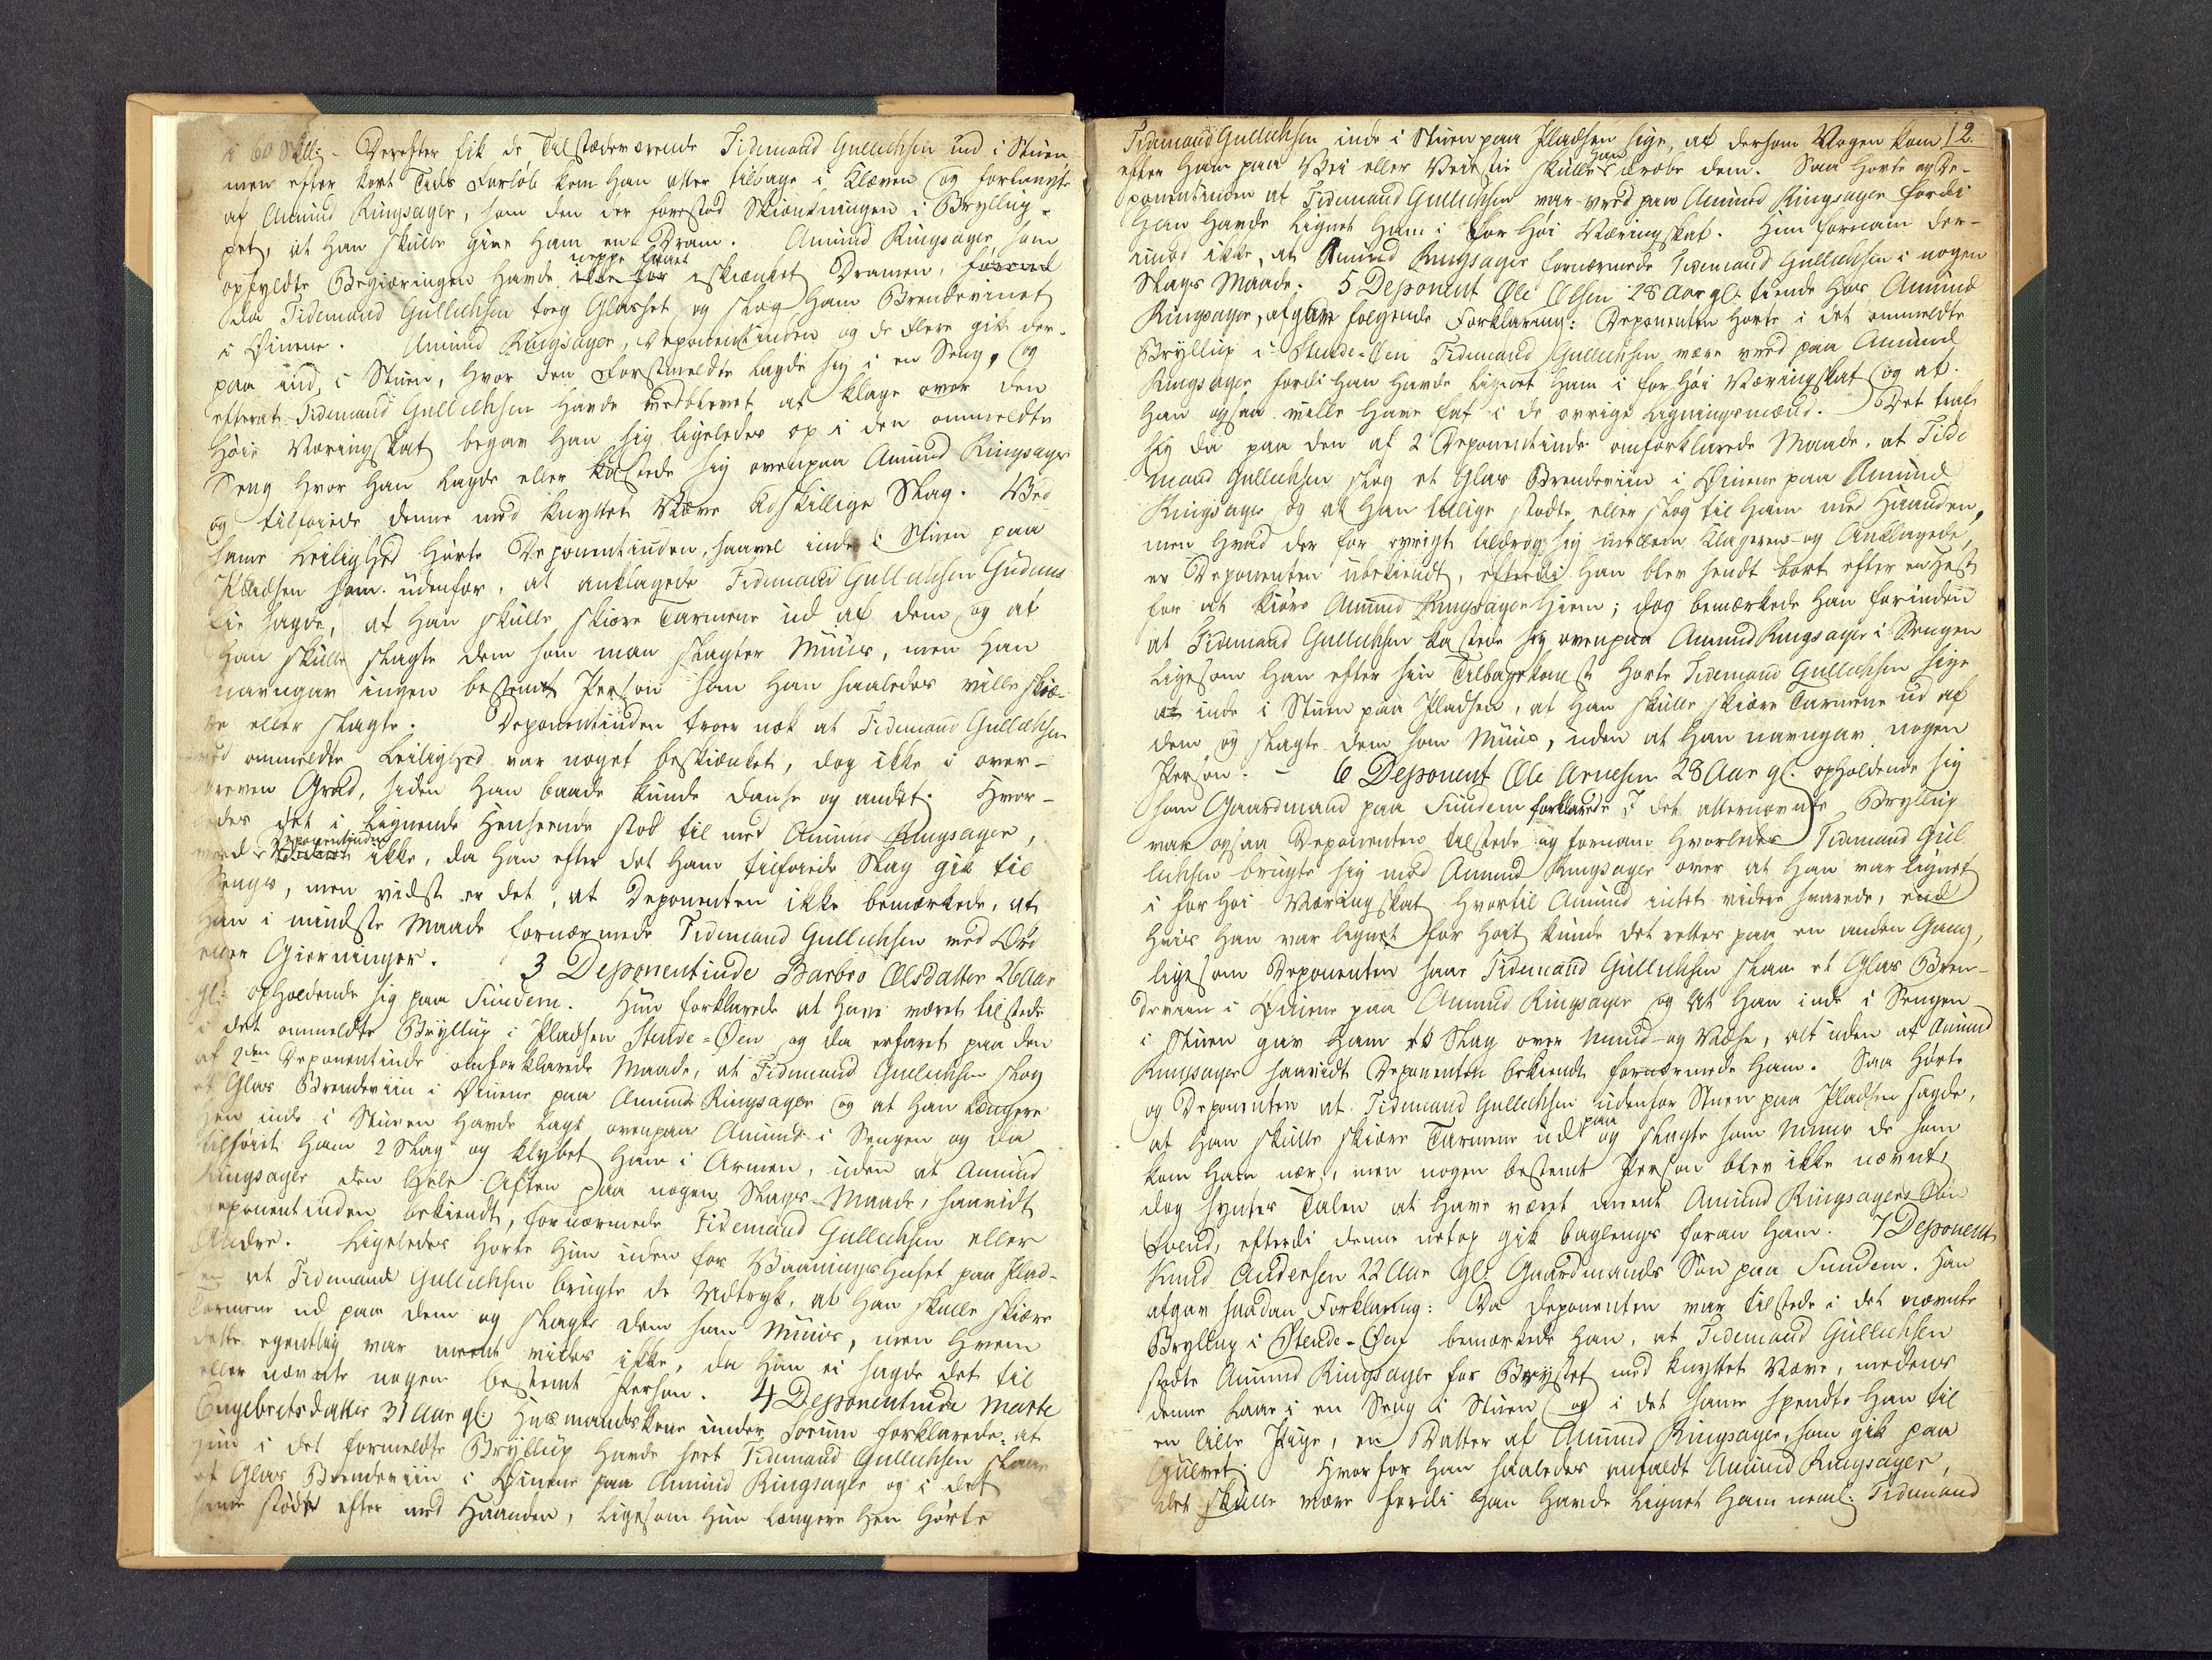 i 60 Skll: Derefter fik de Tilstædeværende Tidemand Gullichsen ind i Stuen
men efter kort Tids Forløb kom han atter tilbage i Kleven og forlangte
af Amund Ringsager, som den der forestod Skiænkningen i Bryllup-
pet, at han skulle give ham en Dram. Amund Ringsager, som
opfyldte Begiæringen havde neppe faaet iskiænket Dramen,
da Tidemand Gullichsen tog Glasset og slog ham Brendevinet
i Øinene. Amund Ringsager, Deponentinden og de flere gik der-
paa ind i Stuen, hvor den Førstmeldte lagde sig i en Seng, og
efterat Tidemand Gullichsen havde vedblevet at klage over den
høie Næringskat begav han sig ligeledes op i den ommeldte
Seng hvor han lagde eller kastede sig ovenpaa Amund Ringsager
og tilføiede denne med knyttet Næve adskillige Slag. Ved
samme Leilighed hørte Deponentinden, saavel inde i Stuen paa
Pladsen som udenfor, at anklagede Tidemand Gullichsen Gudens
lie sagde, at han skulle skiære Tarmene ud af dem og at
han skulle slagte dem som man slagter Muus, men han
navngav ingen bestemt Person som han saaledes ville skiæ-
re eller slagte. Deponentinden troer nok at Tidemand Gullichsen
ved ommeldte Leilighed var noget beskiænket, dog ikke i over-
dreven Grad, siden han baade kunde danse og andet. Hvor-
ledes det i lignende Henseende stod til med Amund Ringsager,
veed Deponentinden ikke, da han efter det ham tilføiede Slag gik til
Sengs, men vidst er det, at Deponenten ikke bemærkede, at
han i mindste Maade fornærmede Tidemand Gullichsen ved Ord
eller Gierninger. 3 Deponentinde Barbro Olsdatter 26 Aar
gl: opholdende sig paa Sundem. Hun forklarede at have været tilstede
i det ommeldte Bryllup i Pladsen Stende-Øen og da erfaret paa den
af 2den Deponentinde omforklarede Maade, at Tidemand Gullichsen slog
et Glas Brendeviin i Øinene paa Amund Ringsager og at han længere
hen inde i Stuen havde lagt ovenpaa Amund i Sengen og da
tilføiet ham 2 Slag og klybet ham i Armen, uden at Amund
Ringsager den hele Aften paa nogen Slags Maade, saavidt
Deponentinden bekiendt, fornærmede Tidemand Gullichsen eller
Andre. Ligeledes hørte hun uden for Vaaningshuset paa Plad-
sen at Tidemand Gullichsen brugte de Udtryk, at han skulle skiære
Tarmene ud paa dem og slagte dem som Muus, men hvem
dette egentlig var meent vides ikke, da han ei sagde det til
eller nævnte nogen bestemt Person. 4 Deponentinde Marte
Engebretsdatter 31 Aar gl: Huusmandskone under Sorum forklarede: at
hun i det formeldte Bryllup havde seet Tidemand Gullichsen slaae
et Glas Brendeviin i Øinene paa Amund Ringsager og i det
samme stødte efter med Haanden, ligesom hun længere hen hørte
Tidemand Gullichsen inde i Stuen paa Pladsen sige, at dersom Nogen kom
12.
efter ham paa Vei eller Veiestie skulle han dræbe dem. Saa hørte og De-
ponentinden at Tidemand Gullichsen var vred paa Amund Ringsager fordi
han havde lignet ham i for høi Næringskat. Hun fornam der-
imod ikke, at Amund Ringsager fornærmede Tidemand Gullichsen i nogen
Slags Maade. 5 Deponent Ole Olsen 28 Aar gl: tiende hos Amund
Ringsager, afgav følgende Forklaring: Deponenten hørte i det ommeldte
Bryllup i Stende-Øen Tidemand Gullichsen være vred paa Amund
Ringsager fordi han havde lignet ham i for høi Næringskat og at
han ogsaa ville have fat i de øvrige Ligningsmænd. Det traf
sig da paa den af 2 Deponentinde omforklarede Maade, at Tide
mand Gullichsen slog et Glas Brendeviin i Øinene paa Amund
Ringsager og at han tillige stødte eller slog til ham med Haanden,
men hvad der for øvrigt tildrog sig imellem Klageren og Anklagede,
er Deponenten ubekiendt, efterdi han blev sendt bort efter en Hest
for at kiøre Amund Ringsager hiem; dog bemærkede han forinden
at Tidemand Gullichsen kastede sig ovenpaa Amund Ringsager i Sengen
ligesom han efter sin Tilbagekomst hørte Tidemand Gullichsen sige
inde i Stuen paa Pladsen, at han skulle skiære Tarmene ud af
dem og slagte dem som Muus, uden at han navngav nogen
Person. - 6 Deponent Ole Arnesen 28 Aar gl: opholdende sig
som Gaardmand paa Sundem forklarede: I det alternævnte Bryllup
var ogsaa Deponenten tilstede og fornam hvorledes Tidemand Gul
lichsen brugte sig mod Amund Ringsager over at han var lignet
i for høi Næringskat hvortil Amund intet videre svarede, end
hvis han var lignet for høit kunde det rettes paa en anden Gang,
ligesom Deponenten saae Tidemand Gullichsen slaae et Glas Bren-
deviin i Øinene paa Amund Ringsager og at han inde i Sengen
i Stuen gav ham to Slag over Mund og Næse, alt uden at Amund
Ringsager saavidt Deponenten bekiendt fornærmede ham. Saa hørte
og Deponenten at Tidemand Gullichsen udenfor Stuen paa Pladsen sagde,
at han skulle skiære Tarmene ud paa og slagte som Muus de som
kom ham nær, men nogen bestemt Person blev ikke nævnt,
dog syntes Talen at have været meent Amund Ringsagers Søn
Svend, efterdi denne netop gik baglengs foran ham. 7 Deponent
Knud Andersen 22 Aar gl: Gaardmands Søn paa Sundem. Han
afgav saadan Forklaring: Da Deponenten var tilstede i det nævnte
Bryllup i Stende-Øen bemærkede han, at Tidemand Gullichsen
stødte Amund Ringsager for Brystet med knyttet Næve, medens
denne laae i en Seng i Stuen og i det samme spendte han til
en lille Pige, en Datter af Amund Ringsager, som gik paa
Gulvet. Hvorfor han saaledes anfaldt Amund Ringsager,
det skulle være fordi han havde lignet ham neml: Tidemand